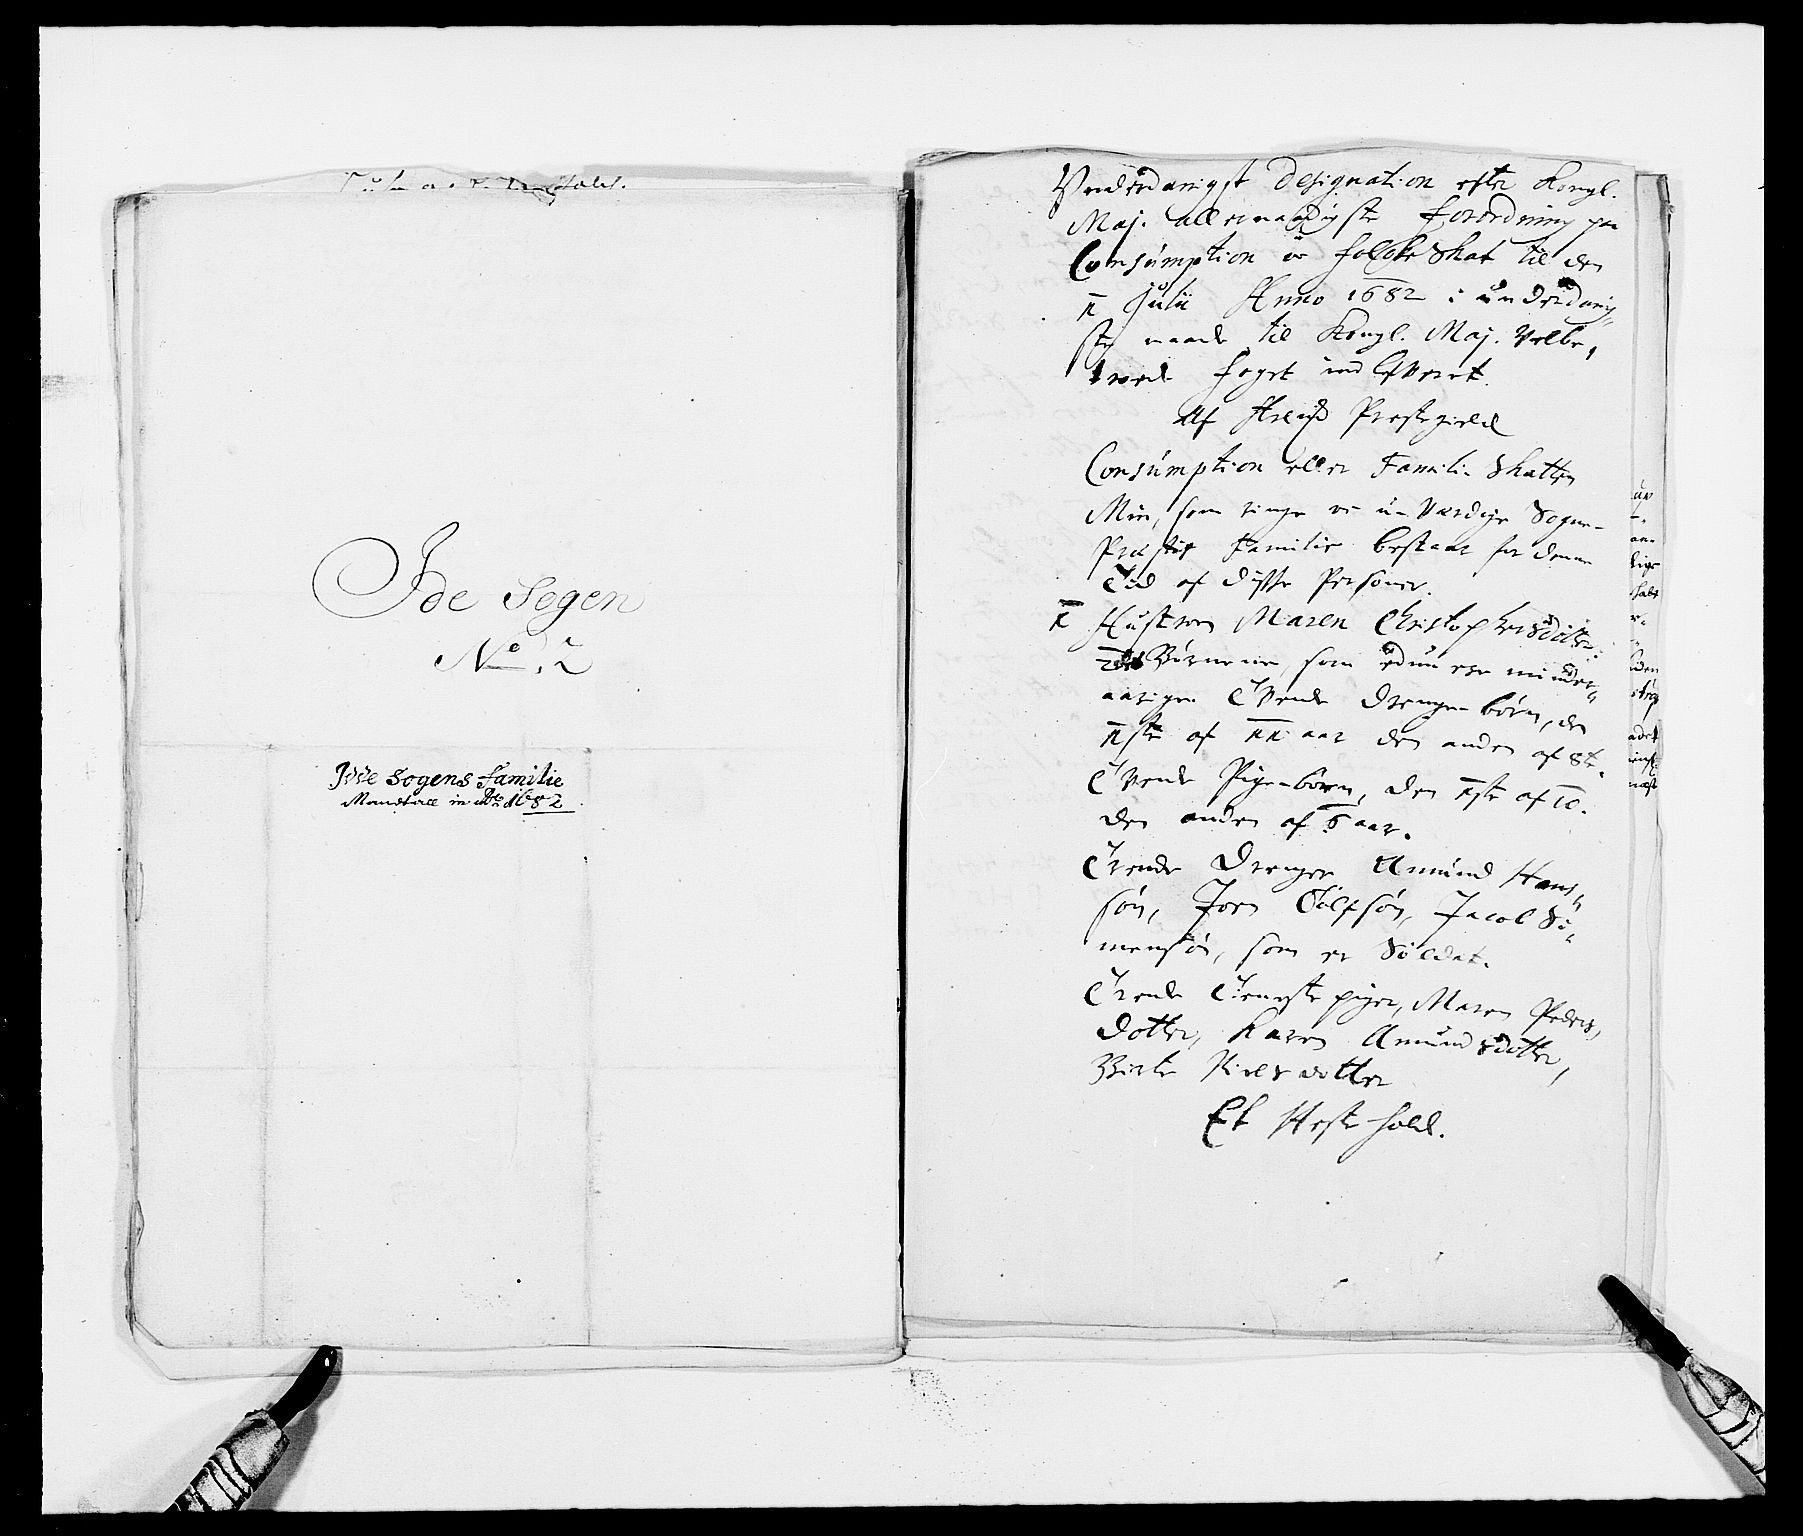 Ide Sogen
No. 2
Idde Sogens Familie
Mandtall in Ao. 1682
Underdanigst Designation efter Kongl.
Maj. allernaadigste forordning paa
Consumption oc folcke Skat til den
1 Julii Anno 1682 i underdanig-
ste maade til Kongl. Maj. Velbe-
troede foget ind lefveret.
Af Præstegield
Consumption eller Familie Skatten
Min, som ringe oc u-værdige Sogne-
Præstis Familie bestaar for denne
Tid af disse Personer.
1 Hustroen Maren Christophersdotter:
Børnene, som ere minder-
aarige Tvende Drenge-børn, den
1ste af 11 aar den anden af 8t.
Tvende Pige-børn, den 1ste af 10.
den anden af 6 aar.
Trende Drenger Amund Hans-
søn, Joen Tolfsøn, Jacob Si-
mensøn, som er Soldat.
Trende Tieneste piger, Maren Peders-
dotter, Karen Amundsdotter,
Birte Nielsdotter
Et Heste hold.